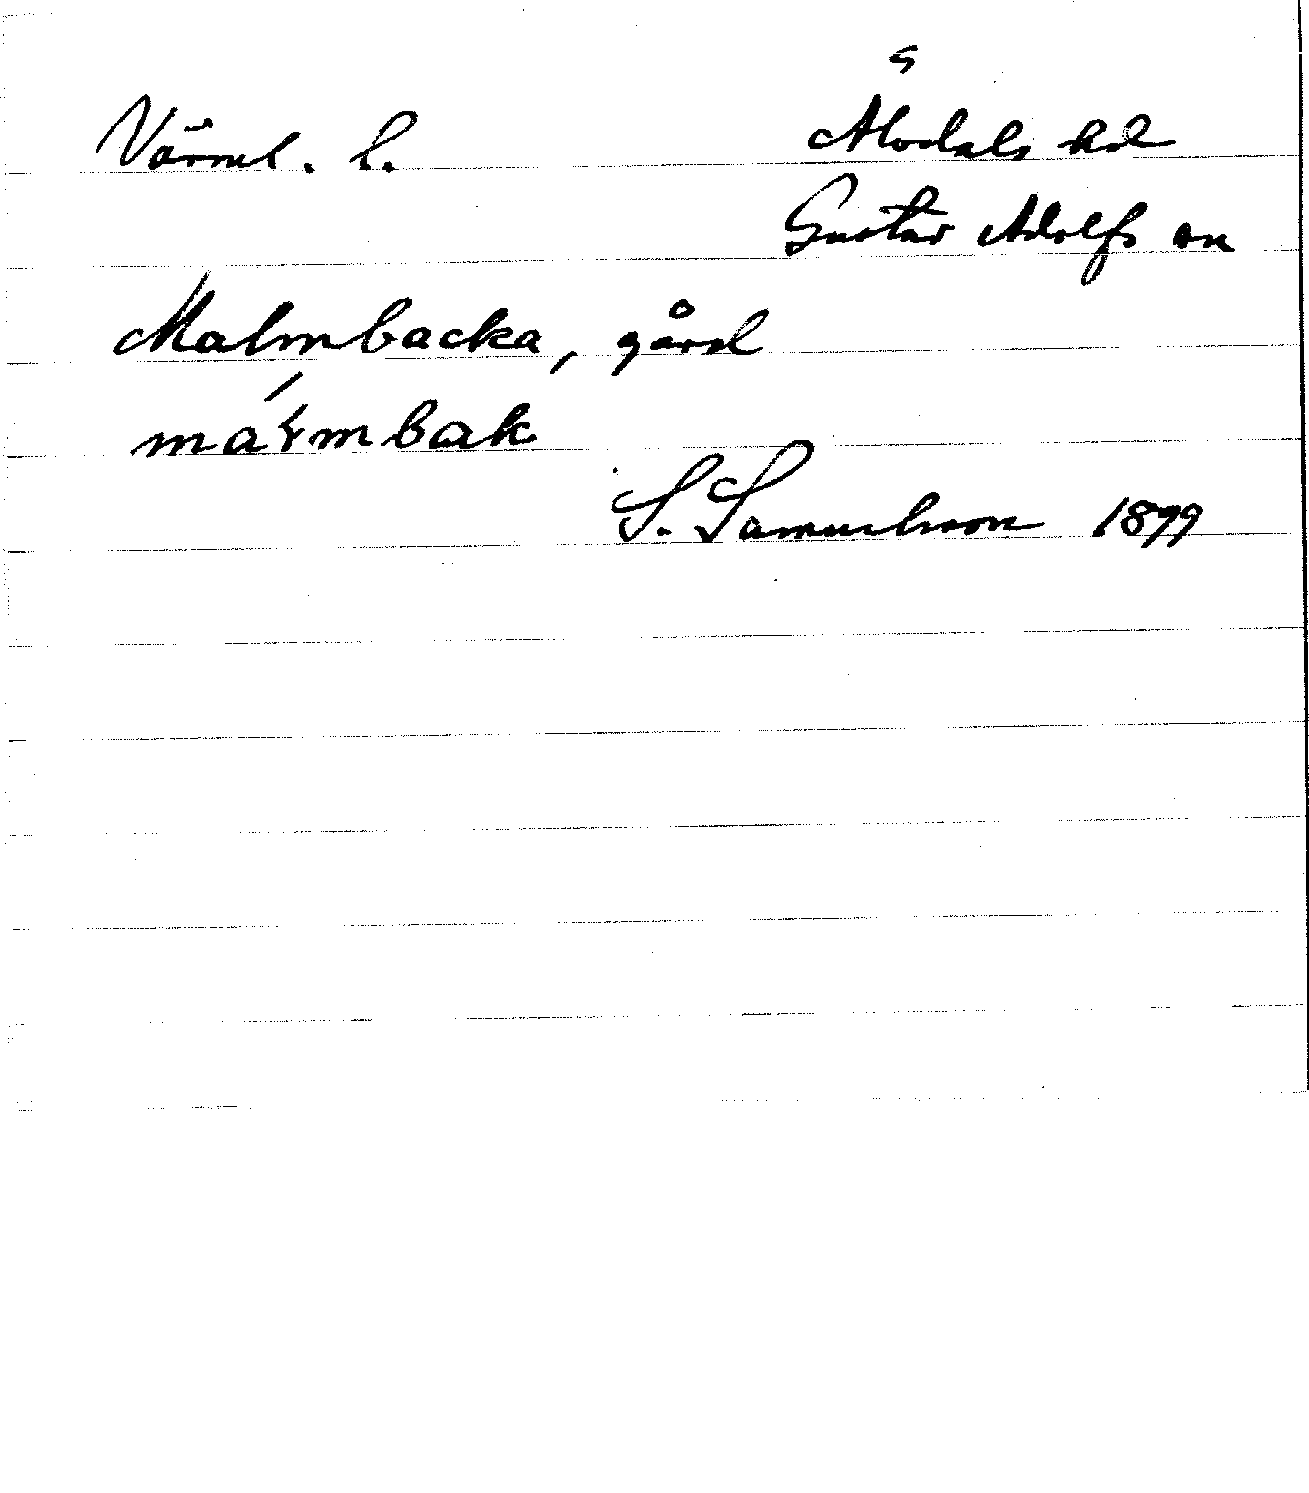 Värml. l. Älvdals hd
Gustav Adolfs sn
Malmbacka, gård
S. Samuelsson 1899